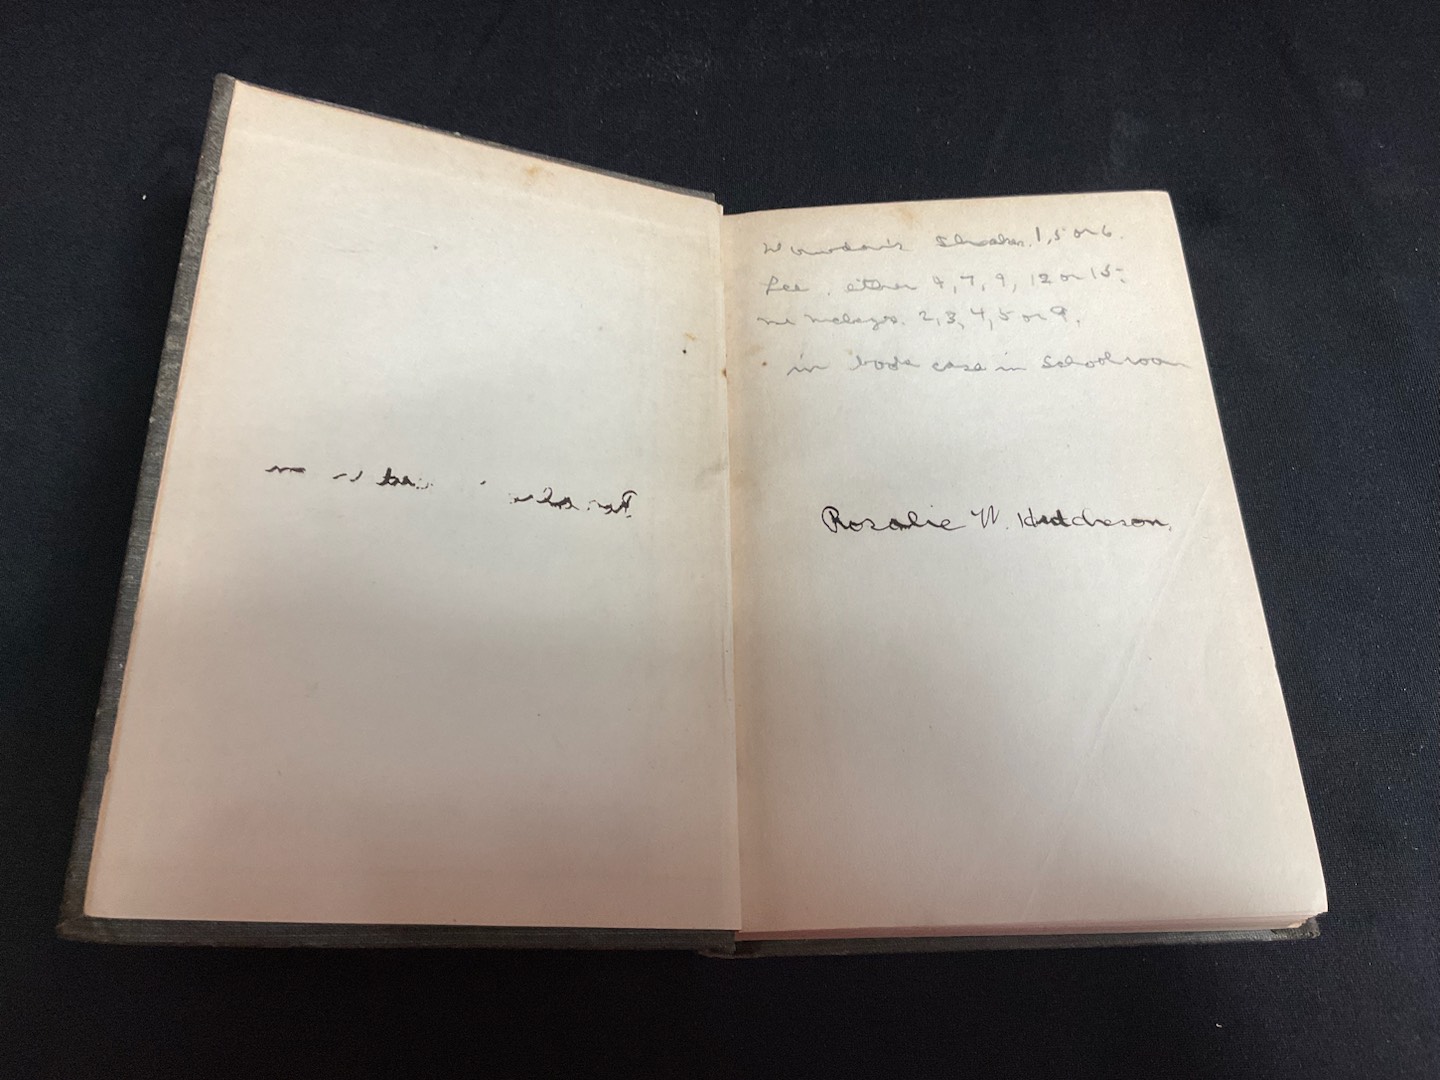 1, 5 or 6.
Lee. either 4, 7, 9, 12 or 15.
2, 3, 4, 5 or 9.
in book case in School room
Rosalie W. Hutcheson.